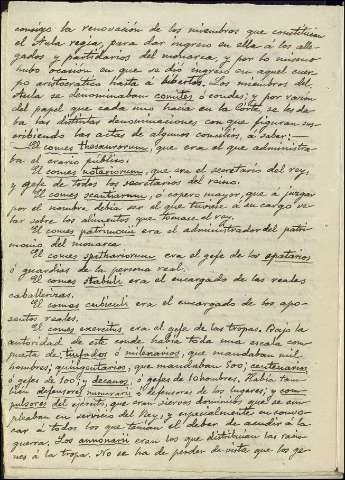 consigo la renovación de los miembros que constituían
el Aula regia, para dar ingreso en ella á los alle-
gados y partidarios del monarca, y por lo mismo
hubo ocasión en que se dió ingreso en aquel cuer-
po aristocrático hasta á libertos. Los miembros del
Aula se denominaban comites ó condes; y por razón
del papel que cada uno hacía en la Corte, se les da-
ba las distintas denominaciones con que figuran sus-
cribiendo las actas de algunos concilios, á saber:—
El comes thesaurorum, que era el que administra-
ba el erario público.
El comes notariorum, que era el secretario del rey,
y gefe de todos los secretarios del reino.
El comes scantiarum, ó copero mayor, que á juzgar
por el nombre debía ser el que tuviese á su cargo ve-
lar sobre los alimentos que tomase el rey.
El comes patrimonii era el administrador del patri-
monio del monarca
El comes spathariorum era el gefe de los spatarios
ó guardias de la persona real.
El comes stabuli era el encargado de las reales
caballerizas.
El comes cubiculi era el encargado de los apo-
sentos reales.
El comes exercitus era el gefe de las tropas. Bajo la
autoridad de este conde había toda una escala com-
puesta de tiufados ó milenarios, que mandaban mil
hombres; quingentarios, que mandaban 500; centenarios
ó gefes de 100; y decanos, ó gefes de 10 hombres. Había tam-
bién defensores ó defensores de los lugares; y com-
pulsores del ejército, que eran siervos dominicos que se em-
pleaban en servicio del Rey, y especialmente en convo-
car á todos los que tenían el deber de acudir á la
guerra. Los annonarii eran los que distribuían las racio-
nes á la tropa. No se ha de perder de vista que los ge-